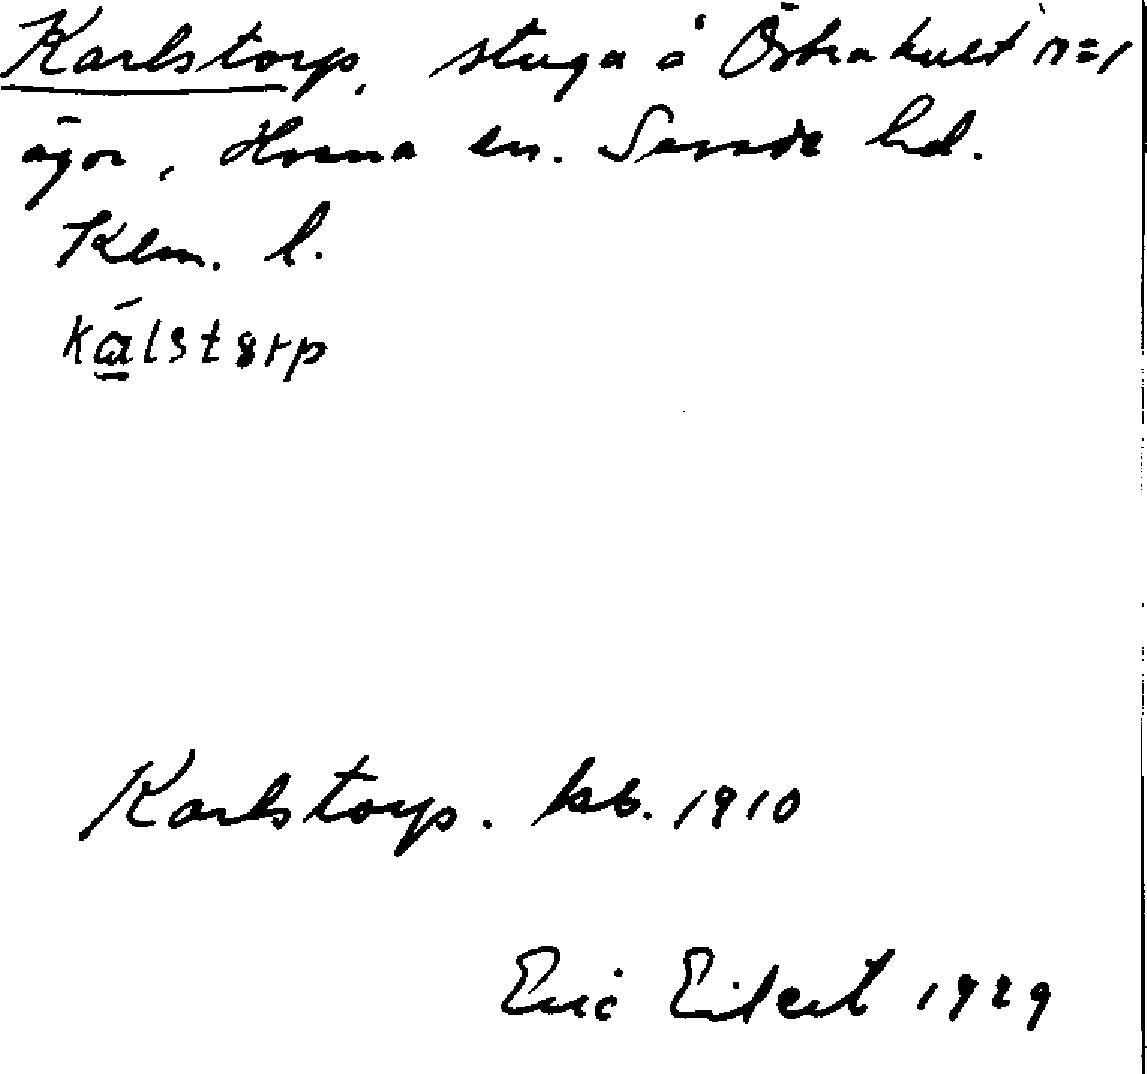 Karlstorp, stuga å Östrakult n=1
ägor, Horna sn. Sevede hd.
Klm. l.
kálstørp
Karlstorp. kb. 1910
Eric Eilert 1929